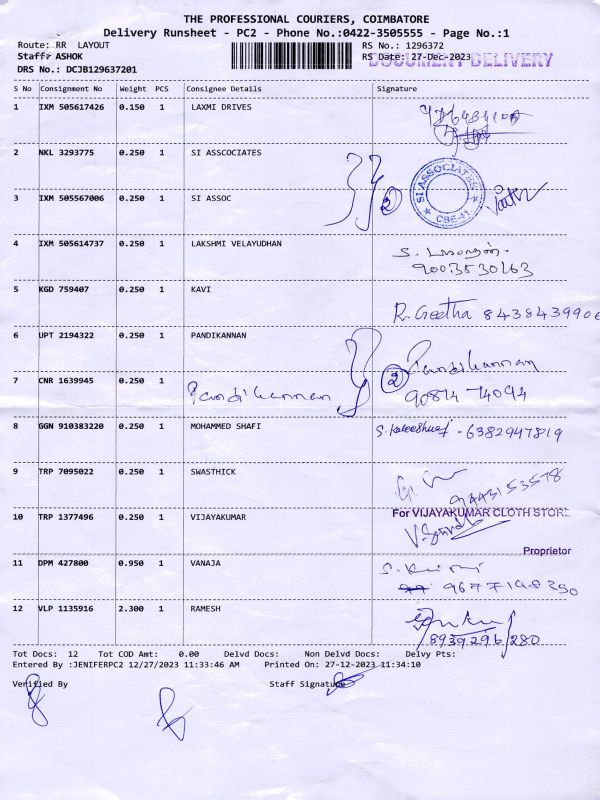 THE PROFESSIONAL COURIERS, COIMBATORE
Delivery Runsheet - PC2 - Phone No.:0422-3505555 - Page No.:1
Route: RR LAYOUT RS No.: 1296372
Staff: ASHOK RS Date: 27-Dec-2023 DOCUMENT DELIVERY
DRS No.: DCJB129637201
S No Consignment No Weight PCS Consignee Details Signature
1 IXM 505617426 0.150 1 LAXMI DRIVES
2 NKL 3293775 0.250 1 SI ASSCOCIATES
SI ASSOCIATES
CBE-11
3 IXM 505567006 0.250 1 SI ASSOC 2
4 IXM 505614737 0.250 1 LAKSHMI VELAYUDHAN
9003530163
5 KGD 759407 0.250 1 KAVI
R. Geetha 8438439906
6 UPT 2194322 0.250 1 PANDIKANNAN
Pandikannan
7 CNR 1639945 0.250 1 Pandikannan 2
90814 74094
8 GGN 910383220 0.250 1 MOHAMMED SHAFI
6382947819
9 TRP 7095022 0.250 1 SWASTHICK
9443153578
10 TRP 1377496 0.250 1 VIJAYAKUMAR For VIJAYAKUMAR CLOTH STORE
Proprietor
11 DPM 427800 0.950 1 VANAJA
12 VLP 1135916 2.300 1 RAMESH
8939296280
Tot Docs: 12 Tot COD Amt: 0.00 Delvd Docs: Non Delvd Docs: Delvy Pts:
Entered By :JENIFERPC2 12/27/2023 11:33:46 AM Printed On: 27-12-2023 11:34:10
Verified By Staff Signature